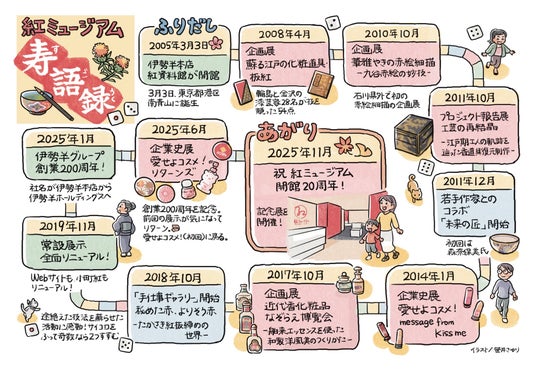 紅ミュージアム
寿語録
ふりだし
2005年3月3日
伊勢半本店
紅資料館が開館
3月3日、東京都港区
南青山に誕生
2008年4月
企画展
蘇る江戸の化粧道具
板紅
輪島と金沢の
漆芸家28名が技を
競った54点
2010年10月
企画展
華雅やきの赤絵細描
―九谷赤絵の妙技―
石川県外で初の
赤絵細描の企画展
2011年10月
プロジェクト報告展
工芸の再結晶
―江戸期工人の軌跡を
辿った板紅復元制作―
2011年12月
若手作家との
コラボ
「未来の匠」開始
初回は
2014年1月
企業史展
愛せよコスメ!
message from
kiss me
2017年10月
企画展
近代香化粧品
なぞらえ博覧会
―舶来エッセンスを使った
和製洋風美のつくりかた―
2018年10月
「手仕事ギャラリー」開始
秘めた赤、よりそう赤
―たかさき紅板締めの
世界―
2019年11月
常設展示
全面リニューアル!
Webサイトも小町紅も
リニューアル!
途絶えた技法を蘇らせた
活動に感動!サイコロを
ふって奇数なら2つすすむ
2025年1月
伊勢半グループ
創業200周年!
社名が伊勢半本店から
伊勢半ホールディングスへ
2025年6月
企業史展
愛せよコスメ!
リターンズ
創業200周年を記念。
前回の展示が気になって
リターン。
愛せよコスメ!(初回)に戻る。
あがり
2025年11月
祝 紅ミュージアム
開館20周年!
記念展を
開催!